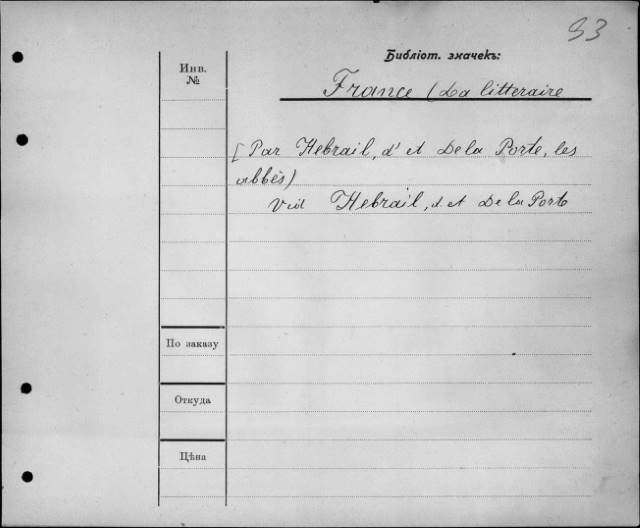 33
Библіот. значекъ:
Инв.
№
France (La litteraire
[Par Hebrail, d' et De la Porte, les
abbés)
Vid Hebrail, d. et De la Porte
По заказу
Откуда
Цѣна